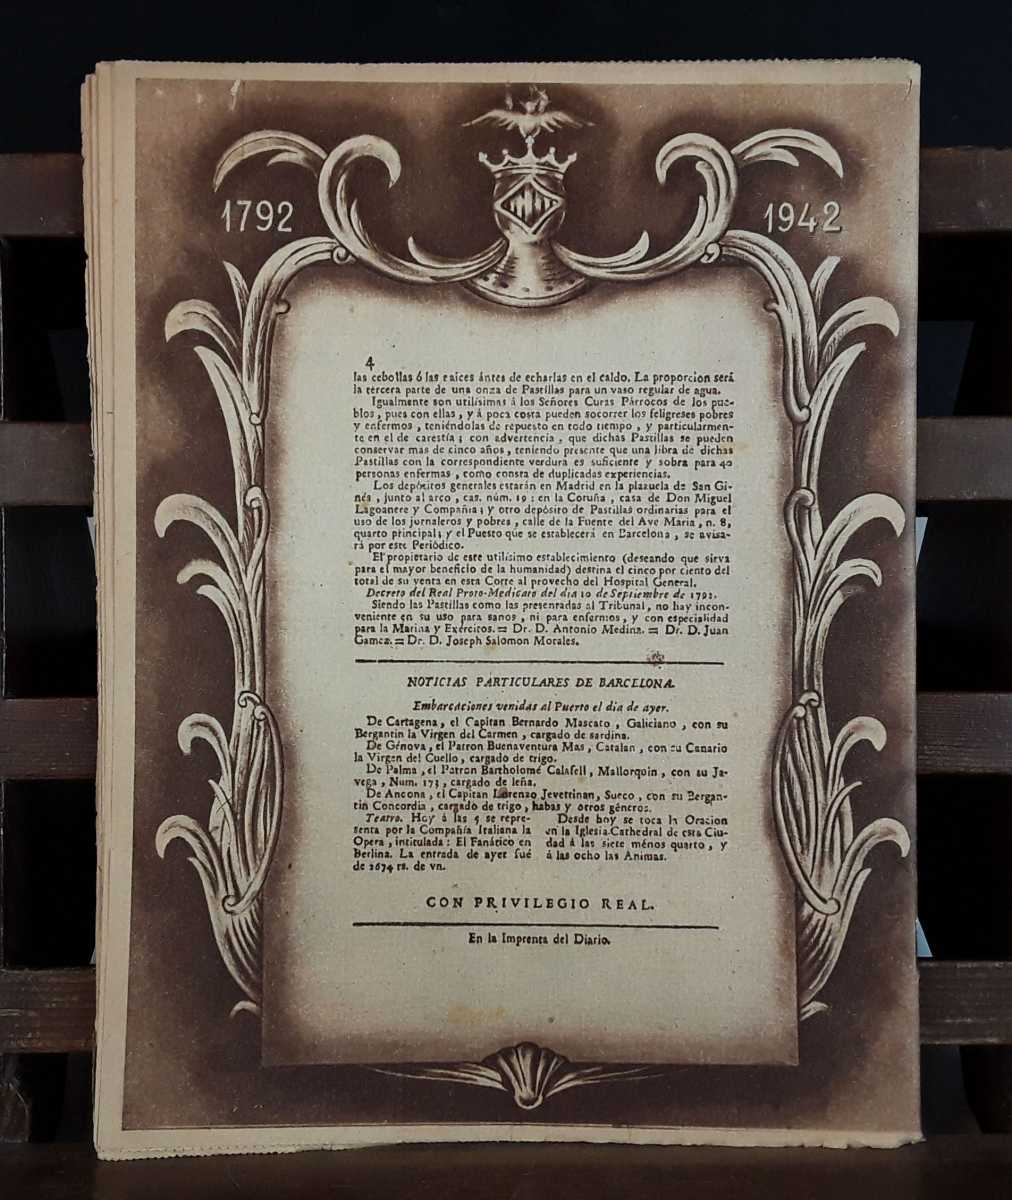 1792
1942
4
las cebollas ó las raices ántes de echarlas en el caldo. La proporcion será
la tercera parte de una onza de Pastillas para un vaso regular de agua.
Igualmente son utilísimas á los Señores Curas Párrocos de los pue-
blos, pues con ellas, y á poca costa pueden socorrer los feligreses pobres
y enfermos, teniéndolas de repuesto en todo tiempo, y particularmen-
te en el de carestía; con advertencia, que dichas Pastillas se pueden
conservar mas de cinco años, teniendo presente que una libra de dichas
Pastillas con la correspondiente verdura es suficiente y sobra para 40
personas enfermas, como consta de duplicadas experiencias.
Los depósitos generales estarán en Madrid en la plazuela de San Gi-
nés, junto al arco, cas. núm. 19: en la Coruña, casa de Don Miguel
Lagoanere y Compañia; y otro depósito de Pastillas ordinarias para el
uso de los jornaleros y pobres, calle de la Fuente del Ave Maria, n. 8,
quarto principal; y el Puesto que se establecerá en Barcelona, se avisa-
rá por este Periódico.
El propietario de este utilísimo establecimiento (deseando que sirva
para el mayor beneficio de la humanidad) destina el cinco por ciento del
total de su venta en esta Corte al provecho del Hospital General.
Decreto del Real Proto-Medicato del dia 10 de Septiembre de 1792.
Siendo las Pastillas como las presentadas al Tribunal, no hay incon-
veniente en su uso para sanos, ni para enfermos, y con especialidad
para la Marina y Exércitos. = Dr. D. Antonio Medina. = Dr. D. Juan
Gamez. = Dr. D. Joseph Salomon Morales.
NOTICIAS PARTICULARES DE BARCELONA.
Embarcaciones venidas al Puerto el dia de ayer.
De Cartagena, el Capitan Bernardo Mascato, Galiciano, con su
Bergantin la Virgen del Carmen, cargado de sardina.
De Génova, el Patron Buenaventura Mas, Catalan, con su Canario
la Virgen del Cuello, cargado de trigo.
De Palma, el Patron Bartholomé Calafell, Mallorquin, con su Ja-
vega, Num. 173, cargado de leña.
De Ancona, el Capitan Lorenzo Jevettinan, Sueco, con su Bergan-
tin Concordia, cargado de trigo, habas y otros géneros.
Teatro. Hoy á las 5 se repre-
senta por la Compañía Italiana la
Opera, intitulada: El Fanático en
Berlina. La entrada de ayer fué
de 2674 rs. de vn.
Desde hoy se toca la Oracion
en la Iglesia Cathedral de esta Ciu-
dad á las siete ménos quarto, y
á las ocho las Animas.
CON PRIVILEGIO REAL.
En la Imprenta del Diario.